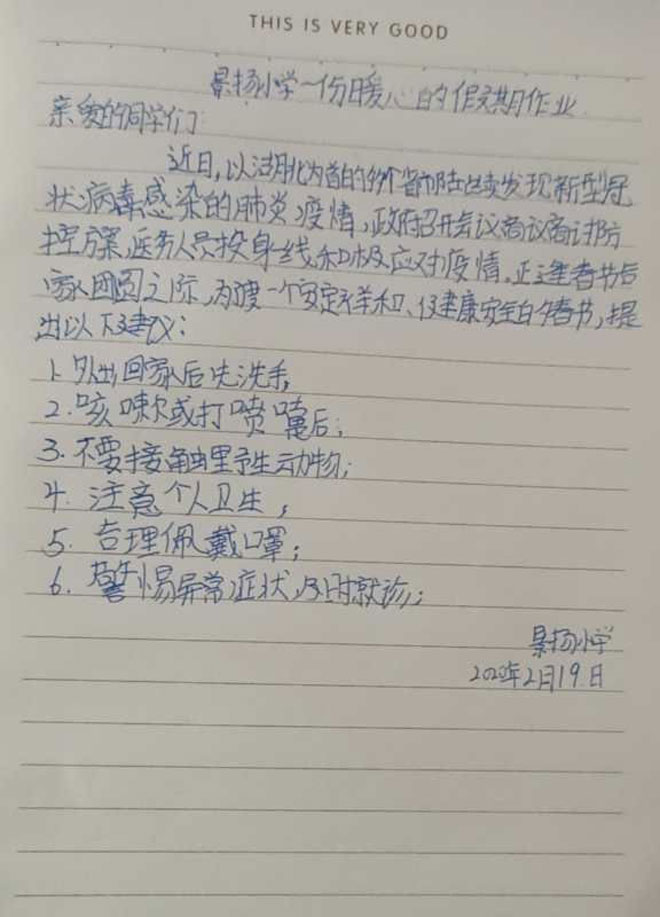 THIS IS VERY GOOD
景扬小学一份暖心的假期作业
亲爱的同学们
近日,以湖北为首的多个省市陆续发现新型冠
状病毒感染的肺炎疫情,政府召开会议商议商讨防
控方案,医务人员投身一线,积极应对疫情。正逢春节后
家人团圆之际,为渡一个安定祥和、健康安全的春节,提
出以下建议:
1. 外出回家后先洗手,
2. 咳嗽或打喷嚏后;
3. 不要接触野生动物;
4. 注意个人卫生,
5. 合理佩戴口罩;
6. 警惕异常症状,及时就诊;
景扬小学
2020年2月19日